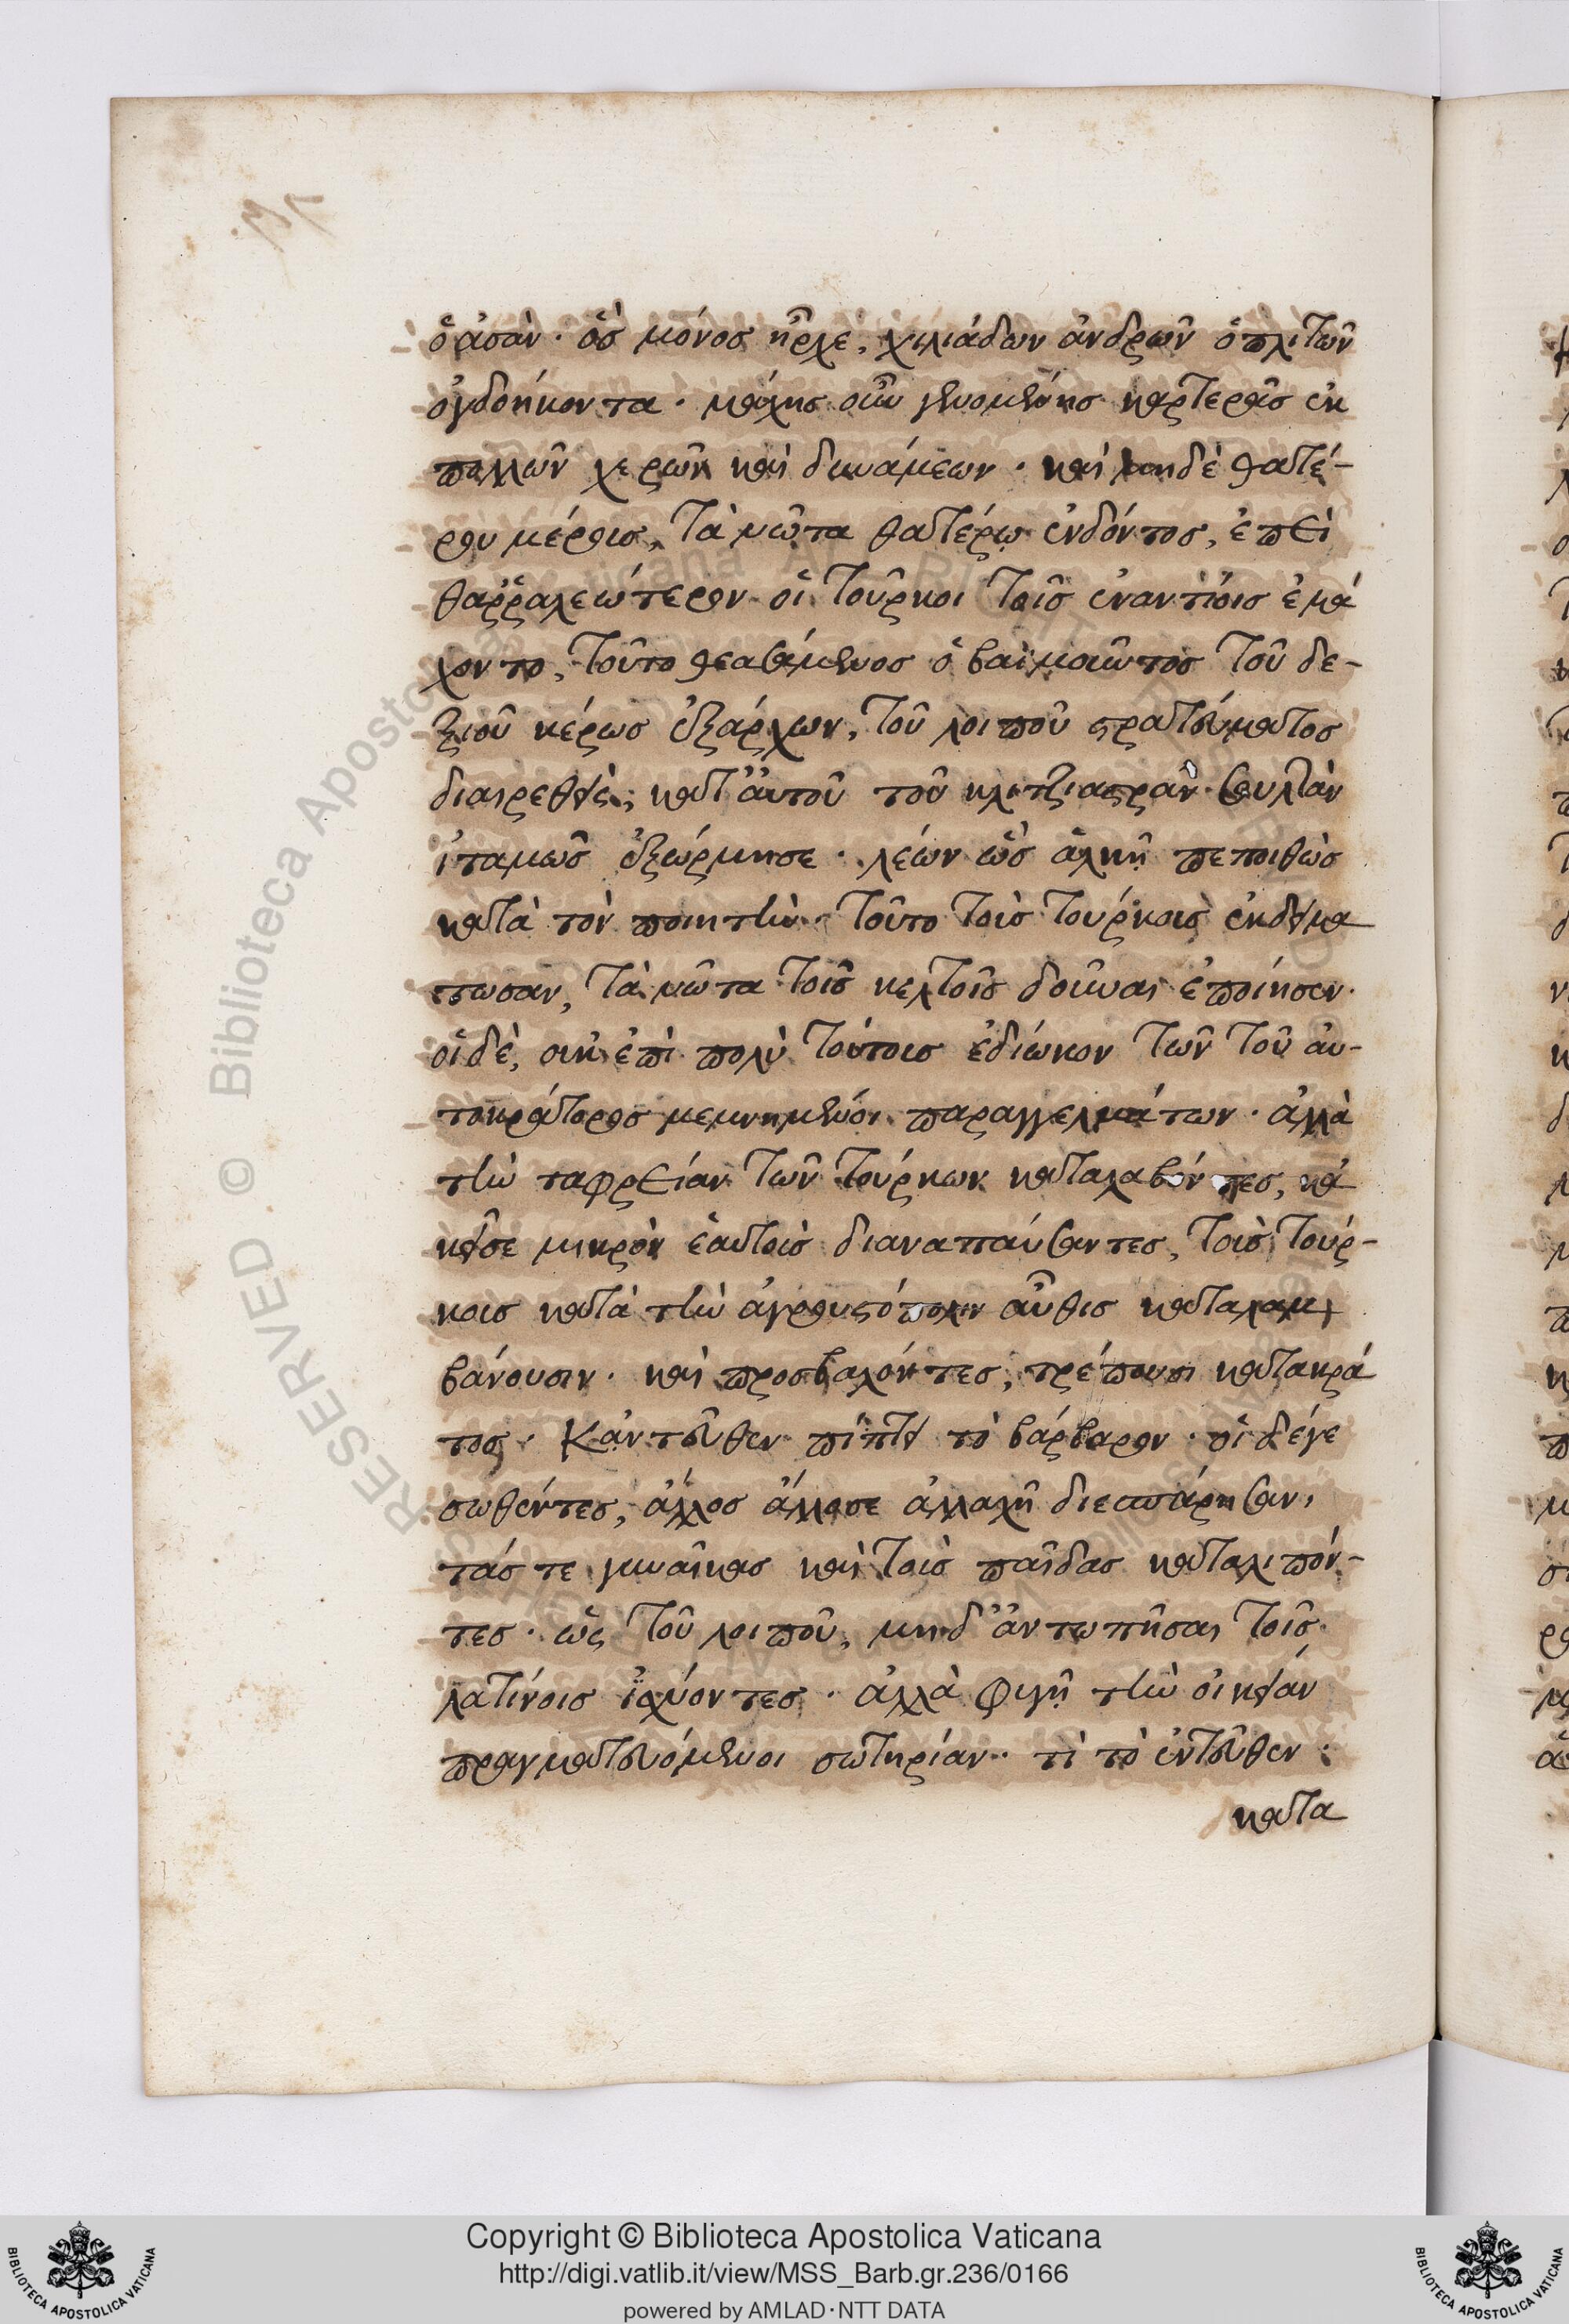 ὁ ἀσὰν· ὃς μόνος ἦρχε, χιλιάδων ἀνδρῶν ὁπλιτῶν
ὀγδοήκοντα· μάχης οὖν γενομένης καρτερᾶς ἐκ
πολλῶν χερῶν καὶ δυνάμεων· καὶ μηδὲ θατέ-
ρου μέρους, τὰ νῶτα θατέρῳ ἐνδόντος, ἐπεὶ
θαῤῥαλεώτερον οἱ Τοῦρκοι τοῖς ἐναντίοις ἐμά
χοντο, τοῦτο θεασάμενος ὁ βαϊμοῦντος τοῦ δε-
ξιοῦ κέρως ἐξάρχων, τοῦ λοιποῦ στρατεύματος
διαιρεθεὶς, κατ' αὐτοῦ τοῦ κλιτζιασθρὰν σουλτὰν
ἰταμῶς ἐξώρμησε· λέων ὣς ἀλκῇ πεποιθὼς
κατὰ τὸν ποιητὴν· τοῦτο τοὺς τούρκους ἐκδειμα
τῶσαν, τὰ νῶτα τοῖς κελτοῖς δοῦναι ἐποίησεν·
οἱ δὲ, οὐκ ἐπὶ πολὺ τούτους ἐδίωκον τῶν τοῦ αὐ-
τοκράτορος μεμνημένοι παραγγελμάτων· ἀλλὰ
τὴν ταφρείαν τῶν τούρκων καταλαβόντες, κἀ
κεῖσε μικρὸν ἑαυτοὺς διαναπαύσαντες, τοὺς τούρ-
κους κατὰ τὴν ἀγρουστόπολιν αὖθις καταλαμ
βάνουσιν· καὶ προσβαλόντες, τρέπουσι κατακρά
τος· Κἀντεῦθεν πίπτει τὸ βάρβαρον· οἱ δέγε
σωθέντες, ἄλλος ἄλλοσε ἀλλαχῆ διεσπάρησαν,
τάς τε γυναῖκας καὶ τοὺς παῖδας καταλιπόν-
τες· ὡς τοῦ λοιποῦ, μηδ' ἀντωπῆσαι τοῖς
λατίνοις ἰσχύοντες· ἀλλὰ φυγῇ τὴν οἰκείαν
πραγματευόμενοι σωτηρίαν· τί τὸ ἐντεῦθεν·
κατα
Copyright © Biblioteca Apostolica Vaticana
http://digi.vatlib.it/view/MSS_Barb.gr.236/0166
powered by AMLAD·NTT DATA